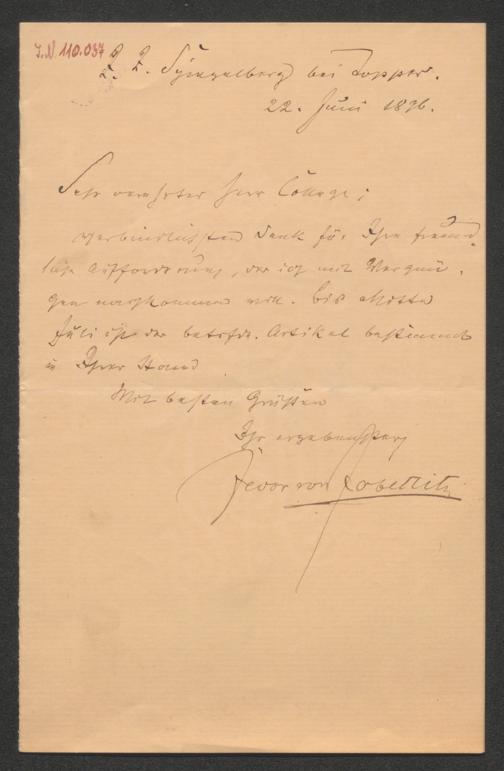 I.N 110.037
z. Z. Spiegelberg bei Topper.
22. Juni 1896.
Sehr verehrter Herr College;
verbindlichsten Dank für Ihre freund-
liche Aufforderung, der ich mit Vergnü-
gen nachkommen will. Bis Mitte
Juli ist der betrffde. Artikel bestimmt
in Ihrer Hand.
Mit besten Grüßen
Ihr ergebenster
Fedor von Zobeltitz